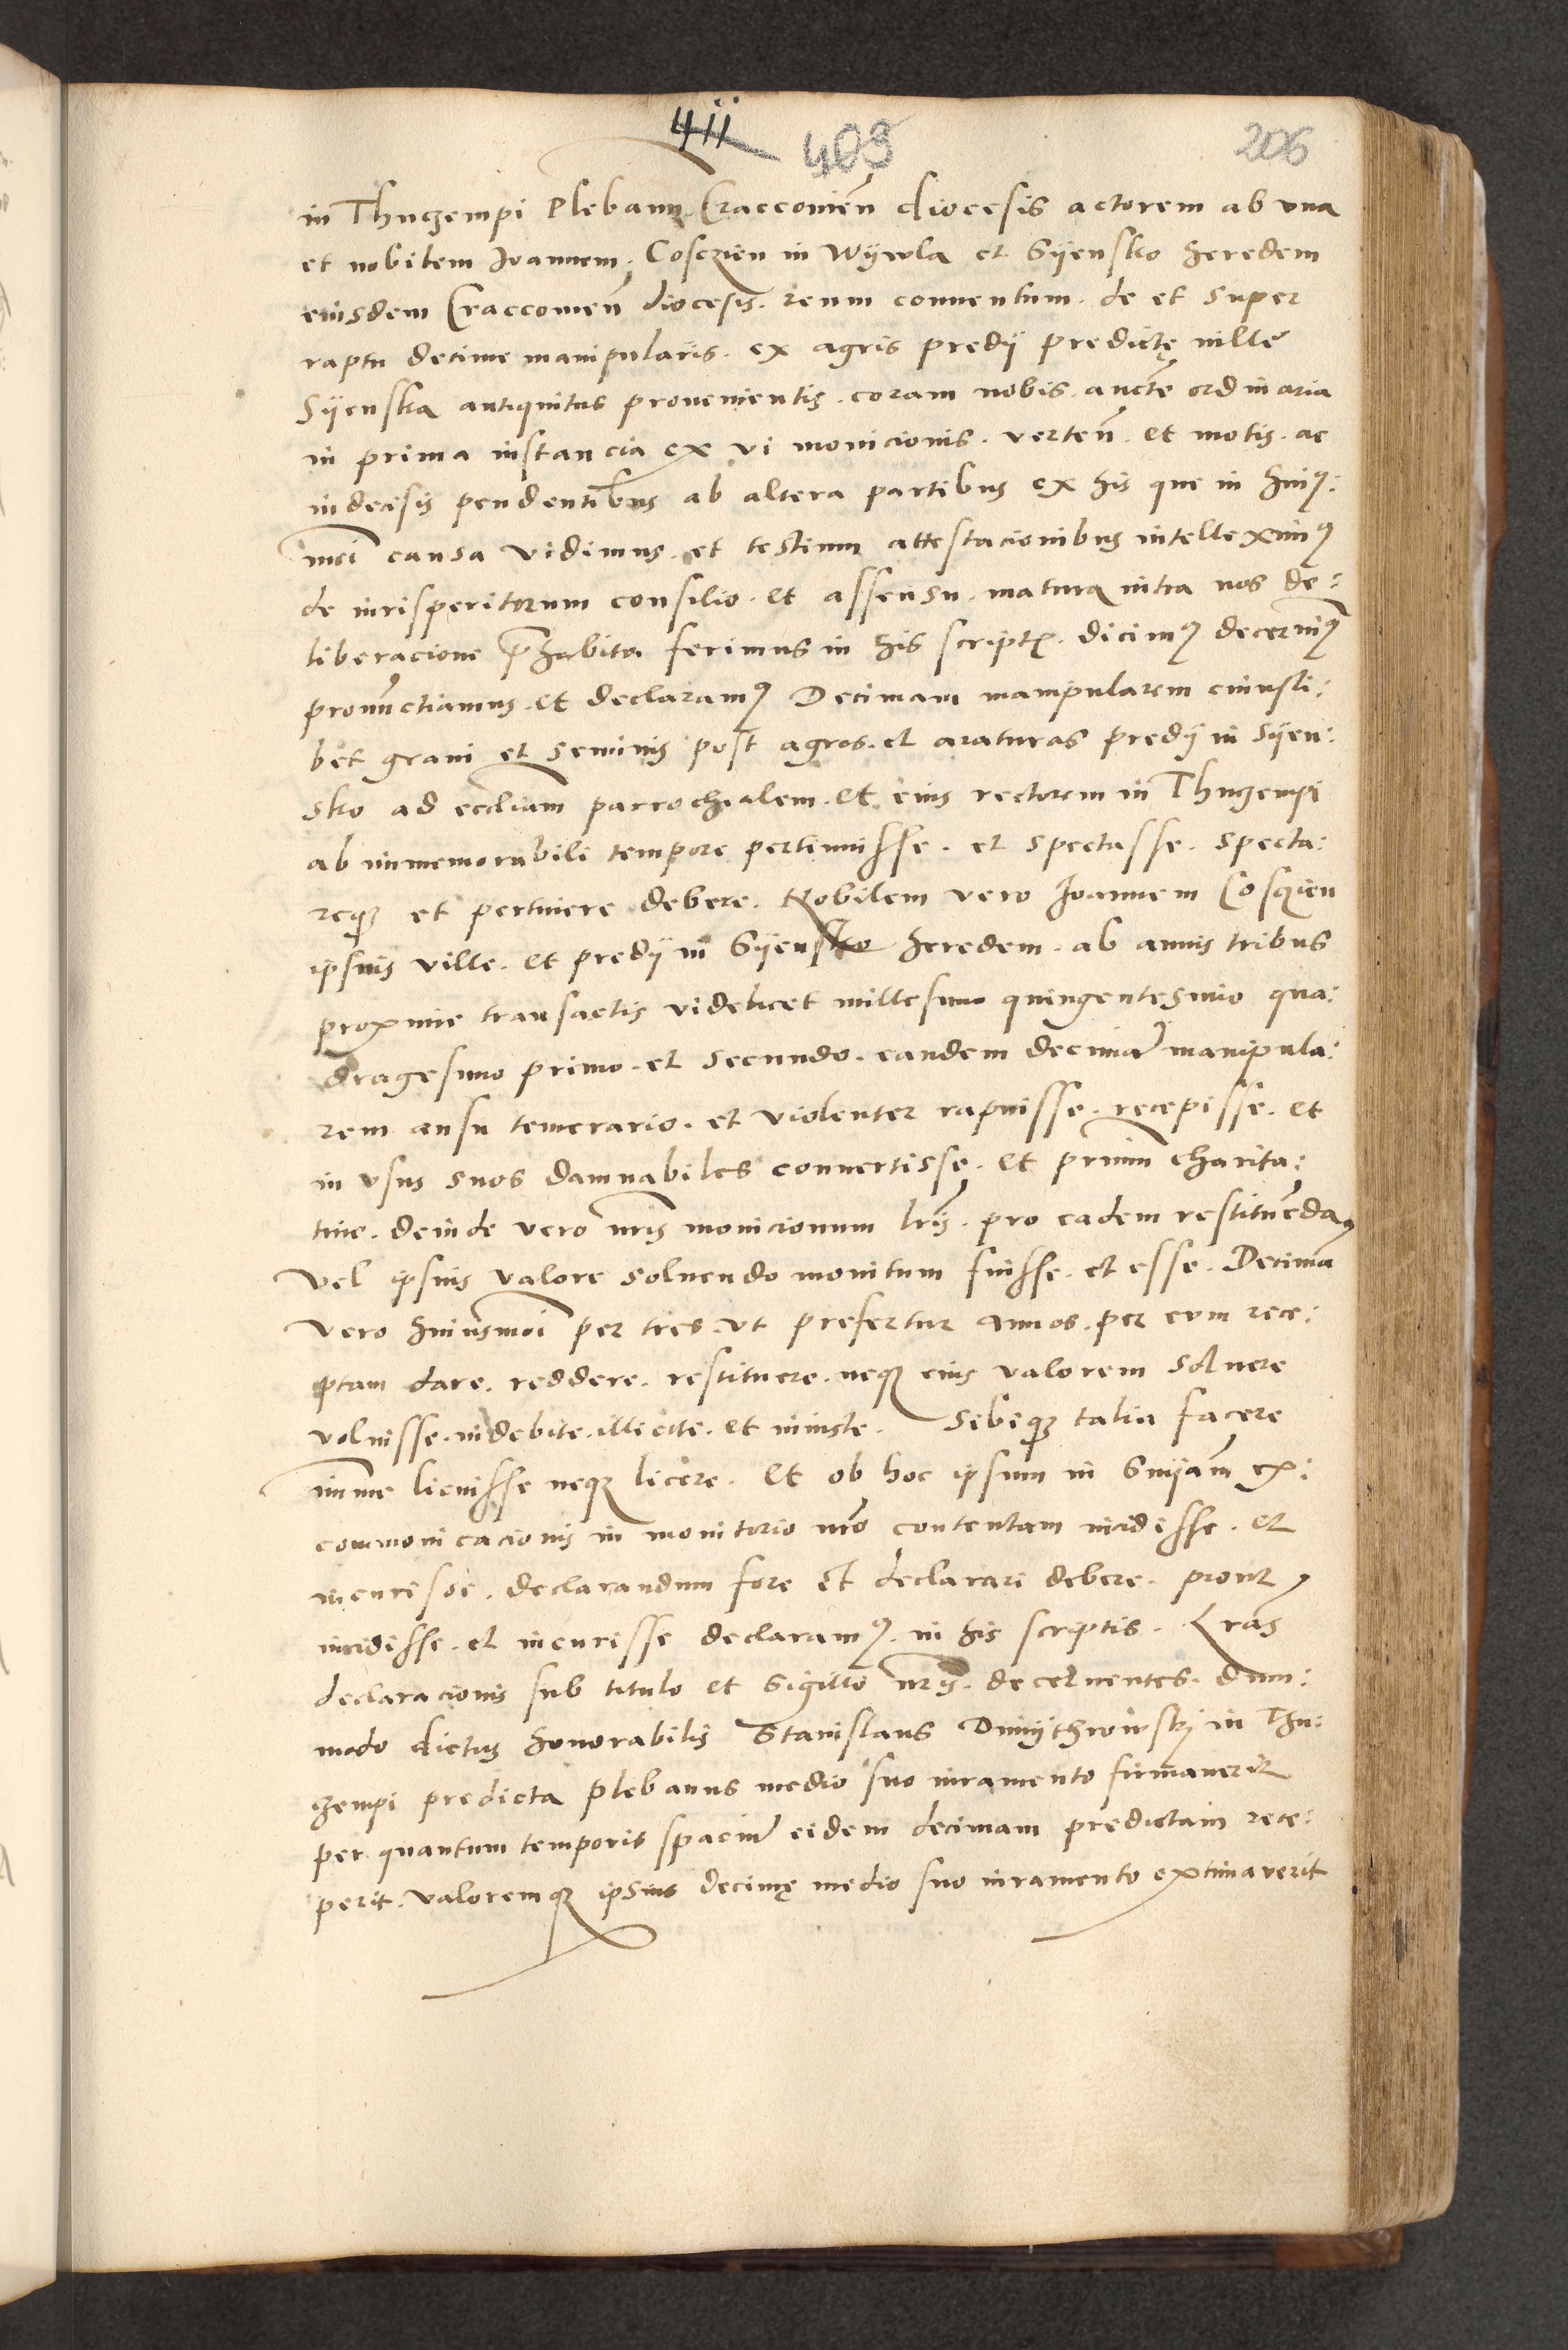 411 409 206
in Thuczempi Plebanum Craccouien̄ diocesis actorem ab vna
et nobilem Ioannem Cosczien in Wÿwla et Sÿensko heredem
eiusdem Craccouien̄ diocesis. reum conuentum. de et super
raptu decime manipularis. ex agris predÿ predictę ville
Sÿenska antiquitus prouenientis. coram nobis. aucte ordinaria
in prima instancia ex vi monicionis. verten̄. et motis. ac
indecisis pendentibus ab altera partibus ex his que in huiꝰ:
moi causa vidimus. et testium attestacionibus intelleximꝰ
de iurisperitorum consilio. et assensu. matura intra nos de:
liberacione p̄habita ferimus in his scriptꝭ. dicimꝰ decernimꝰ
pronūctiamus. et declaramꝰ Decimam manipularem cuiusli:
bet grani et seminis post agros. et araturas predÿ in Sÿen:
sko ad eccliam parrochialem. et eius rectorem in Thuczempi
ab immemorabili tempore pertinuisse. et spectasse. specta:
reqꝫ et pertinere debere. Nobilem vero Ioannem Cosczien
ipsius ville. et predÿ in Sÿensko heredem. ab annis tribus
proxime transactis videlicet millesimo quingentesimo qua:
dragesimo primo. et secundo. eandem decimā manipula:
rem ausu temerario. et violenter rapuisse. recepisse. et
in vsus suos damnabiles conuertisse. et primū charita:
tiue. deinde vero nr̄is monicionum lr̄is. pro eadem restituēda,
vel ipsius valore soluendo monitum fuisse. et esse. Decimā
vero huiusmoi per tres. vt prefertur annos. per eum rece:
ptam dare. reddere. restituere. neqꝫ eius valorem soluere
voluisse. indebite. illicite. et iniuste. Sibiqꝫ talia facere
minime licuisse neqꝫ licere. Et ob hoc ipsum in snÿam ex:
communicacionis in monitorio nr̄o contentam incidisse. et
incurisse. declarandum fore et declarari debere. prout
incidisse. et incurisse declaramꝰ. in his scriptis. Lr̄as
declaracionis sub titulo et sigillo nr̄is. decernentes. dum:
modo dictus honorabilis Stanislaus Dmÿthrowskÿ in Thu:
czempi predicta plebanus medio suo iuramento firmauerit
per quantum temporis spaciū eidem decimam predictam rece:
perit. valoremqꝫ ipsius decimę medio suo iuramento extimauerit